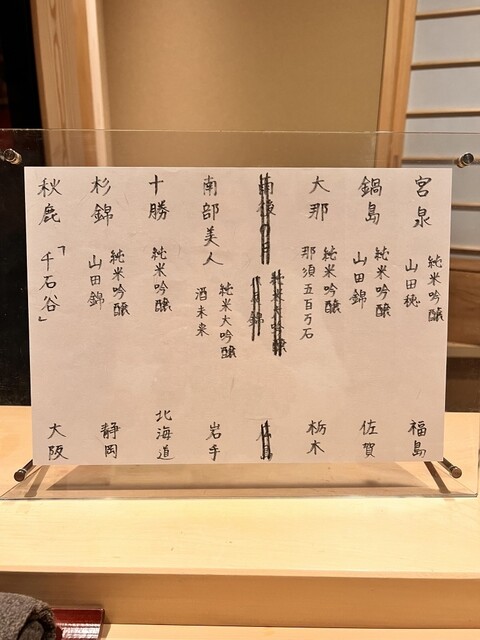 宮泉 純米吟醸
山田穂 福島
鍋島 純米吟醸
山田錦 佐賀
大那 純米吟醸
那須五百万石 栃木
純米大吟醸
錦
南部美人 純米大吟醸
酒未来 岩手
十勝 純米吟醸 北海道
杉錦 純米吟醸
山田錦 静岡
秋鹿 「千石谷」 大阪